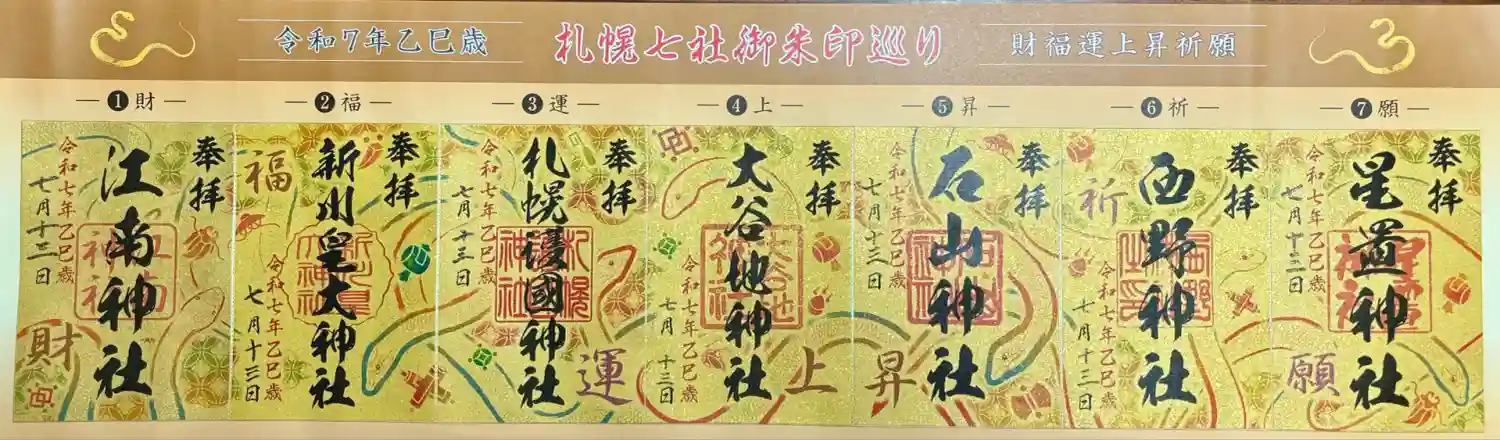 令和7年乙巳歳
札幌七社御朱印巡り
財福運上昇祈願
❶財
❷福
❸運
❹上
❺昇
❻祈
❼願
奉拝
江南神社
令和七年乙巳歳
七月十三日
財
奉拝
新川皇大神社
福
令和七年乙巳歳
七月十三日
奉拝
札幌護國神社
令和七年乙巳歳
七月十三日
運
奉拝
大谷地神社
令和七年乙巳歳
七月十三日
上
奉拝
石山神社
令和七年乙巳歳
七月十三日
昇
奉拝
西野神社
祈
令和七年乙巳歳
七月十三日
奉拝
星置神社
令和七年乙巳歳
七月十三日
願